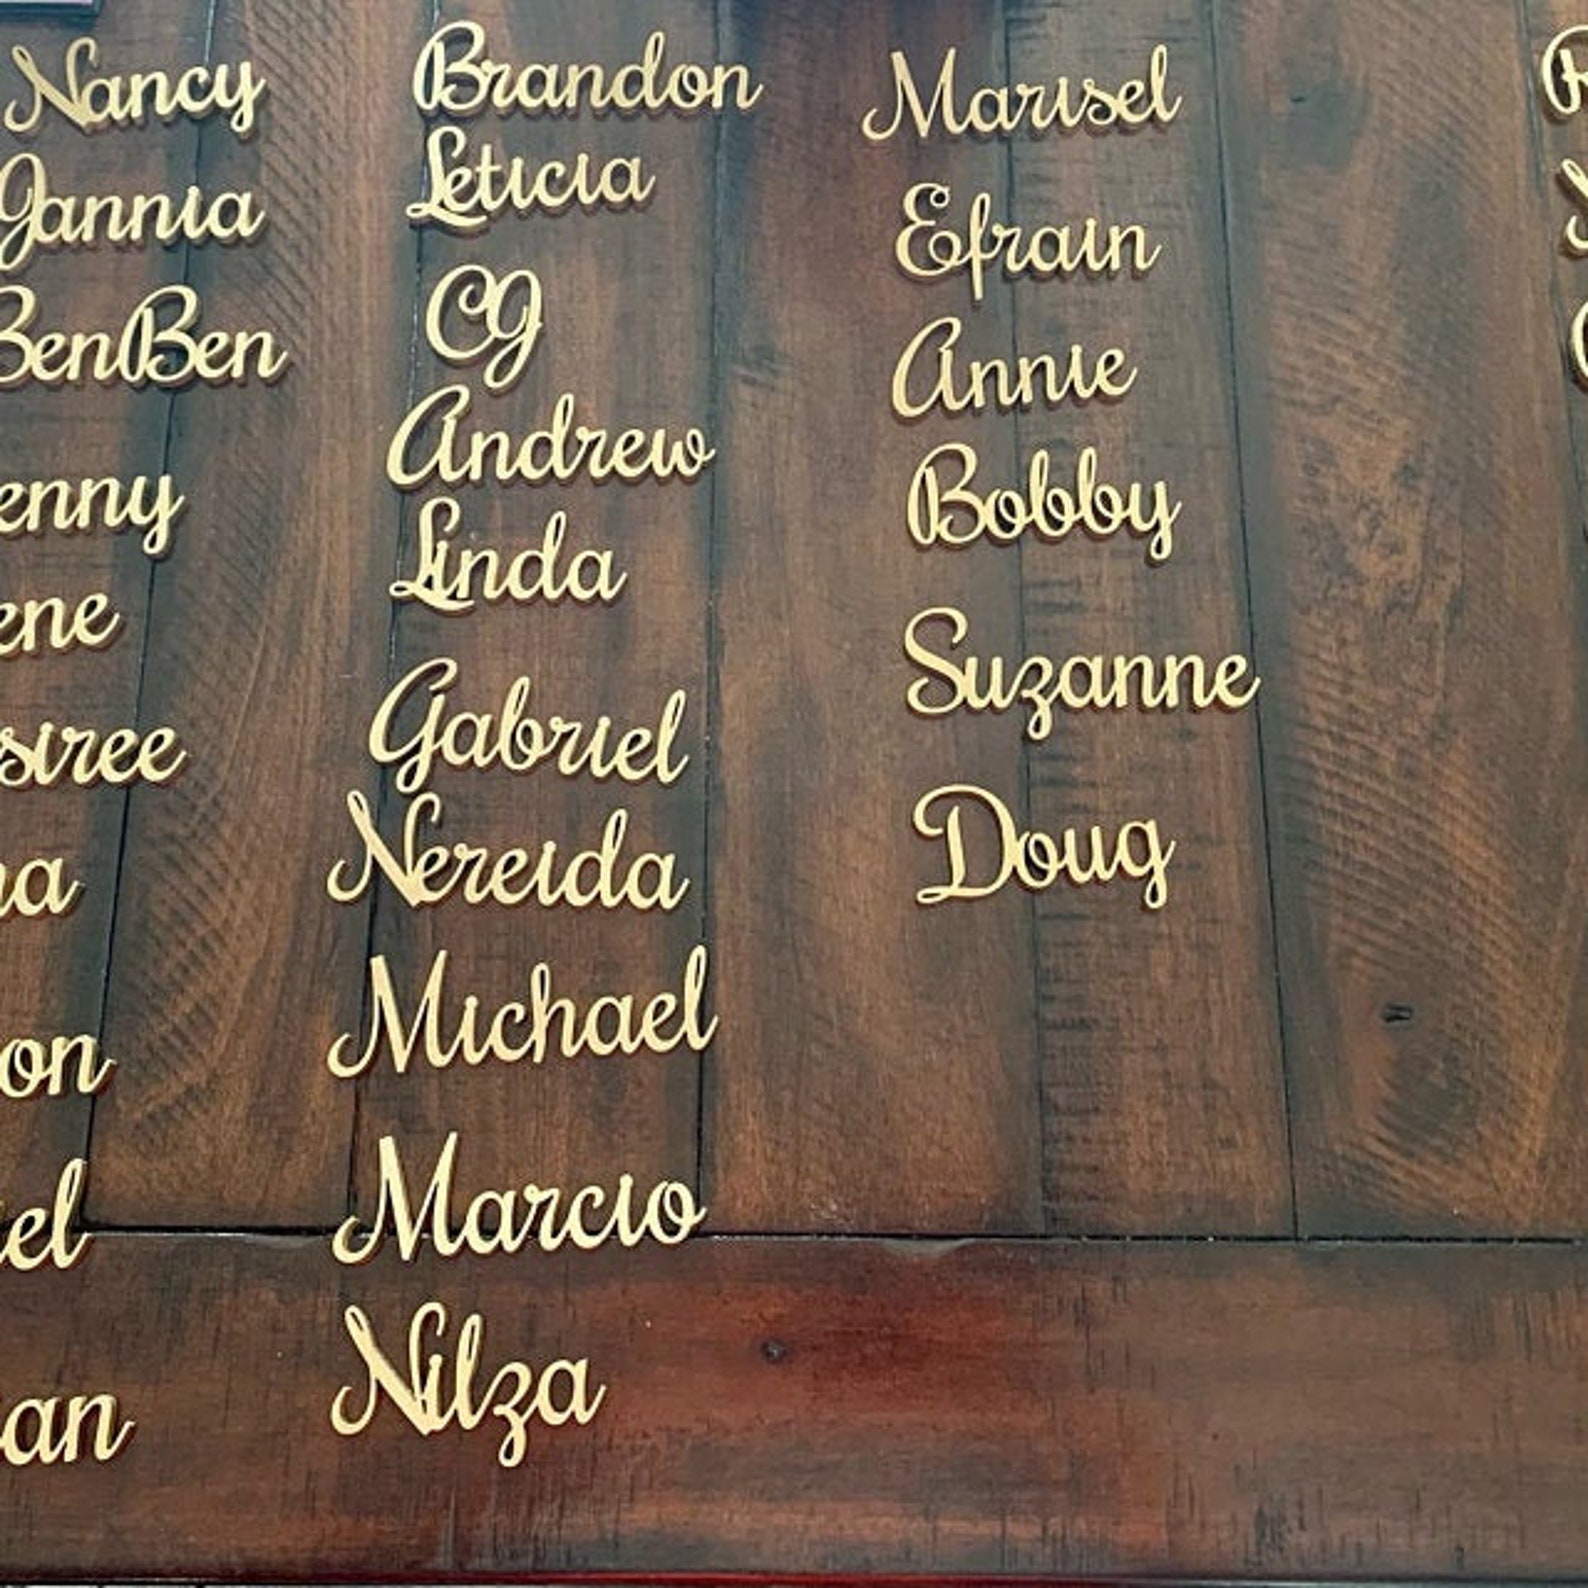 Nancy
Jannia
BenBen
enny
ene
siree
na
on
el
an
Brandon
Leticia
CJ
Andrew
Linda
Gabriel
Nereida
Michael
Marcio
Nilza
Marisel
Efrain
Annie
Bobby
Suzanne
Doug